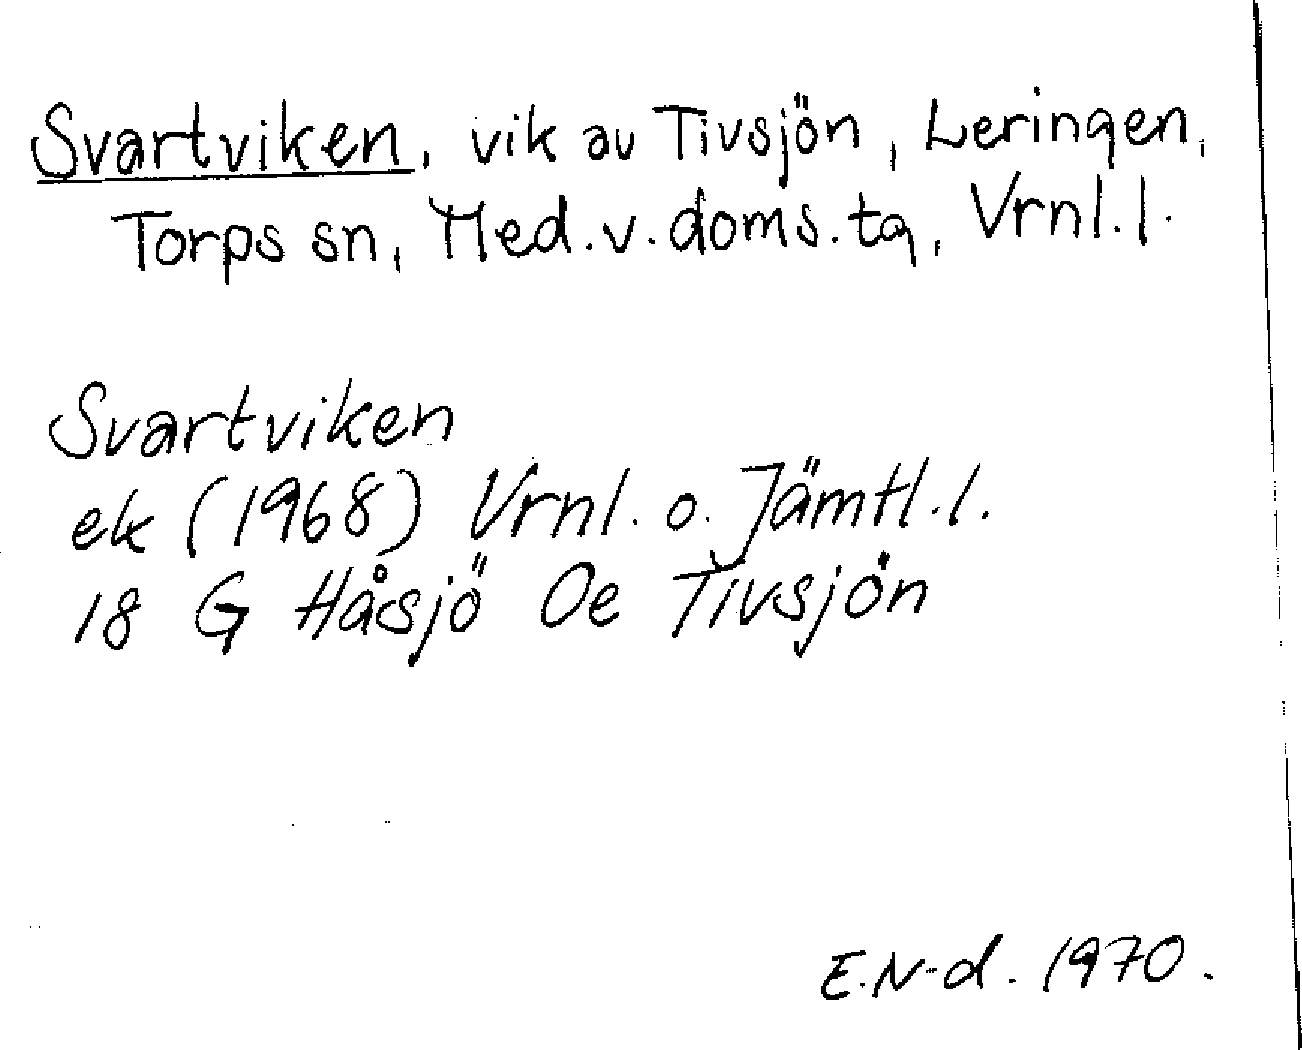 Svartviken, vik av Tivsjön, Leringen,
Torps sn, Med.v.doms.tg, Vrnl.l.
Svartviken
ek (1968) Vrnl. o. Jämtl.l.
18 G Håsjö Oe Tivsjön
E.N-d. 1970.